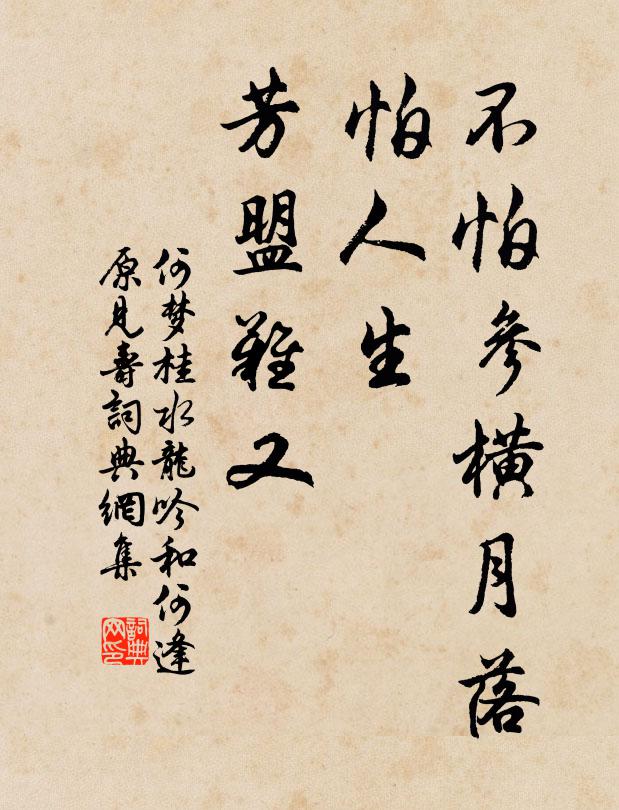 不怕參横月落
怕人生
芳盟難又
何梦桂水龍吟和何逢
原見壽詞典網集
詞典
网印